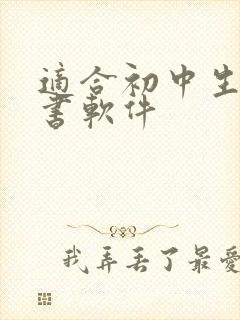 適合初中生
書軟件
我弄丟了最愛